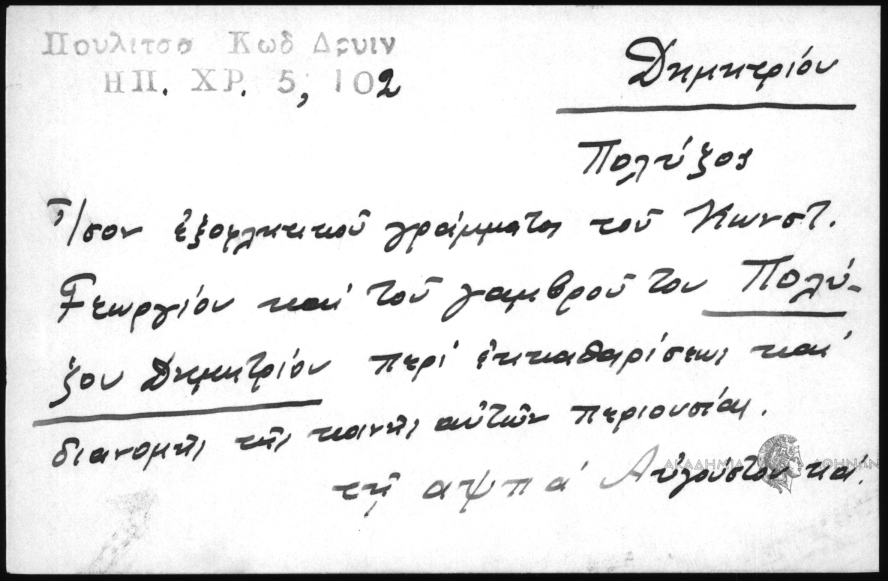 Πουλιτσα Κωδ Δρυιν
ΗΠ. ΧΡ. 5, 102
Δημητρίου
Πολύξος
Ἴσον ἐξοφλητικοῦ γράμματος τοῦ Κωνστ.
Γεωργίου καὶ τοῦ γαμβροῦ του Πολύ-
ξου Δημητρίου περὶ ἐκκαθαρίσεως καὶ
διανομῆς τῆς κοινῆς αὐτῶν περιουσίας.
τῇ αψπα' Αὐγούστου κα'.
ΑΚΑΔΗΜΙΑ ΑΘΗΝΩΝ